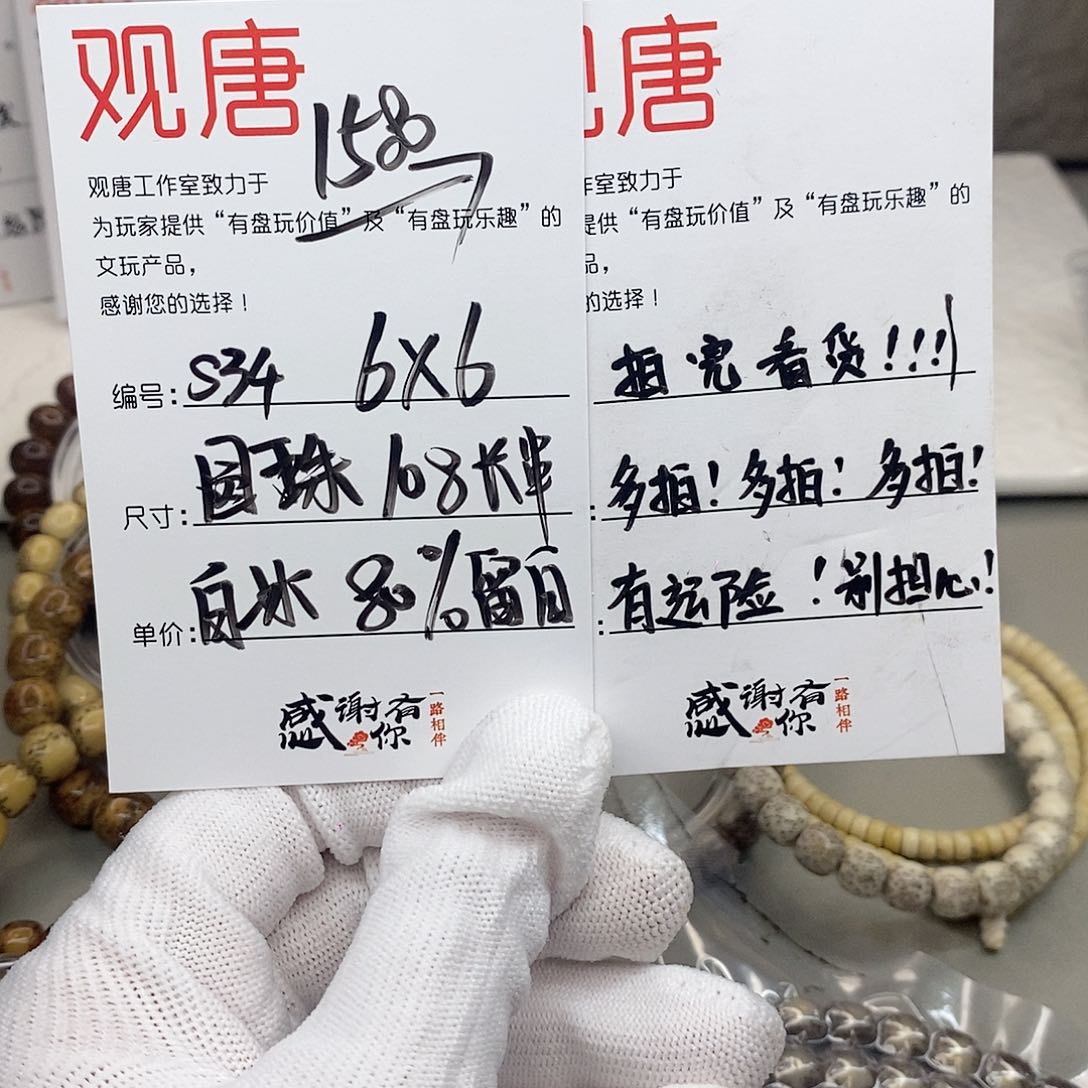 观唐
158
观唐工作室致力于
为玩家提供“有盘玩价值”及“有盘玩乐趣”的
文玩产品，
感谢您的选择！
编号：S34 6X6
尺寸：圆珠 108长串
单价：白冰 80%留白
感谢有你
一路相伴
观唐
作室致力于
提供“有盘玩价值”及“有盘玩乐趣”的
品，
的选择！
拍完看货!!!
：多拍！多拍！多拍！
：有运险！别担心！
感谢有你
一路相伴